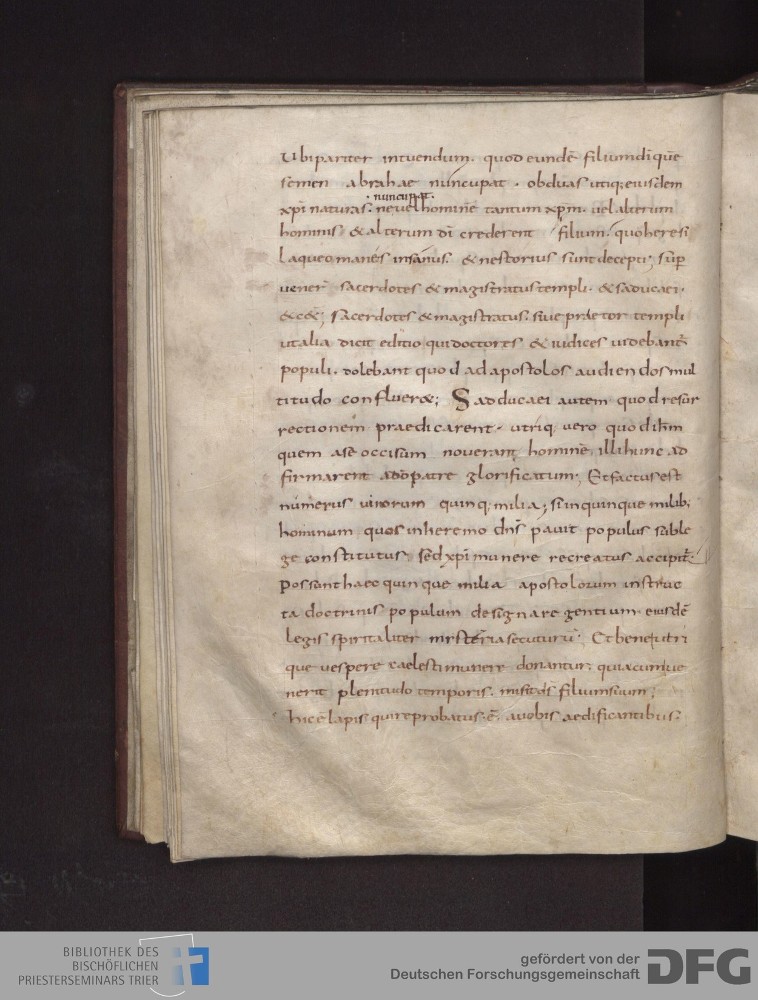 Ubi pariter intuendum. quod eundē filium dī quē
semen abrahae nuncupat. ob duas utiq; eiusdem
· nuncupat ·
xpī naturas. ne uel hominē tantum xpm. uel alterum
hominis. & alterum dī crederent filium. quo heresi
laqueo manes insanus. & nestorius sunt decepti; sup
uener̄ sacerdotes & magistratus templi. & saducaei.
&c&; sacerdotes & magistratus. siue praetor templi
ut alia dicit editio, qui doctores & iudices uidebant̄
populi. dolebant quod ad apostolos audiendos mul
titudo conflueret; Saducaei autem quod resur
rectionem praedicarent. utriq; uero quod ihm
quem a se occisum nouerant hominē, illi hunc ad
firmarent a dō patre glorificatum; Et factus est
numerus uirorum quinq; milia; si in quinque milib;
hominum quos in heremo dns pauit populus sub le
ge constitutus, sed xpī munere recreatus accipit̄.
Possunt haec quinque milia apostolorum instruc
ta doctrinis populum designare gentium. eiusdē
legis spiritaliter mysteria secuturū. Et bene utri
que uespere caelesti munere donantur, quia cum ue
nerit plenitudo temporis. misit d̄s filium suum;
hic ē lapis, qui reprobatus ē auobis aedificantibus.
BIBLIOTHEK DES
BISCHÖFLICHEN
PRIESTERSEMINARS TRIER
gefördert von der
Deutschen Forschungsgemeinschaft
DFG